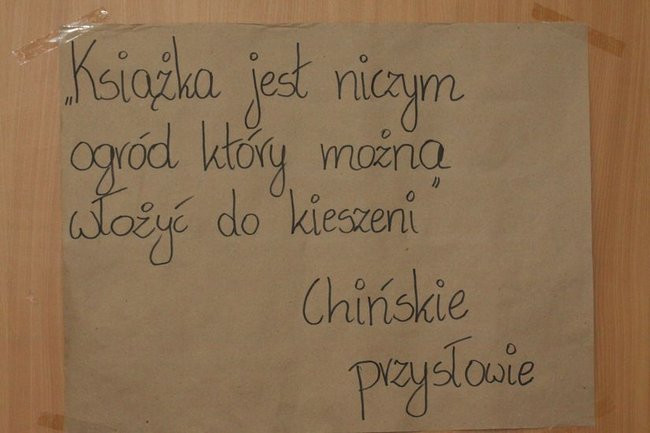 „Książka jest niczym
ogród który można
włożyć do kieszeni”
Chińskie
przysłowie